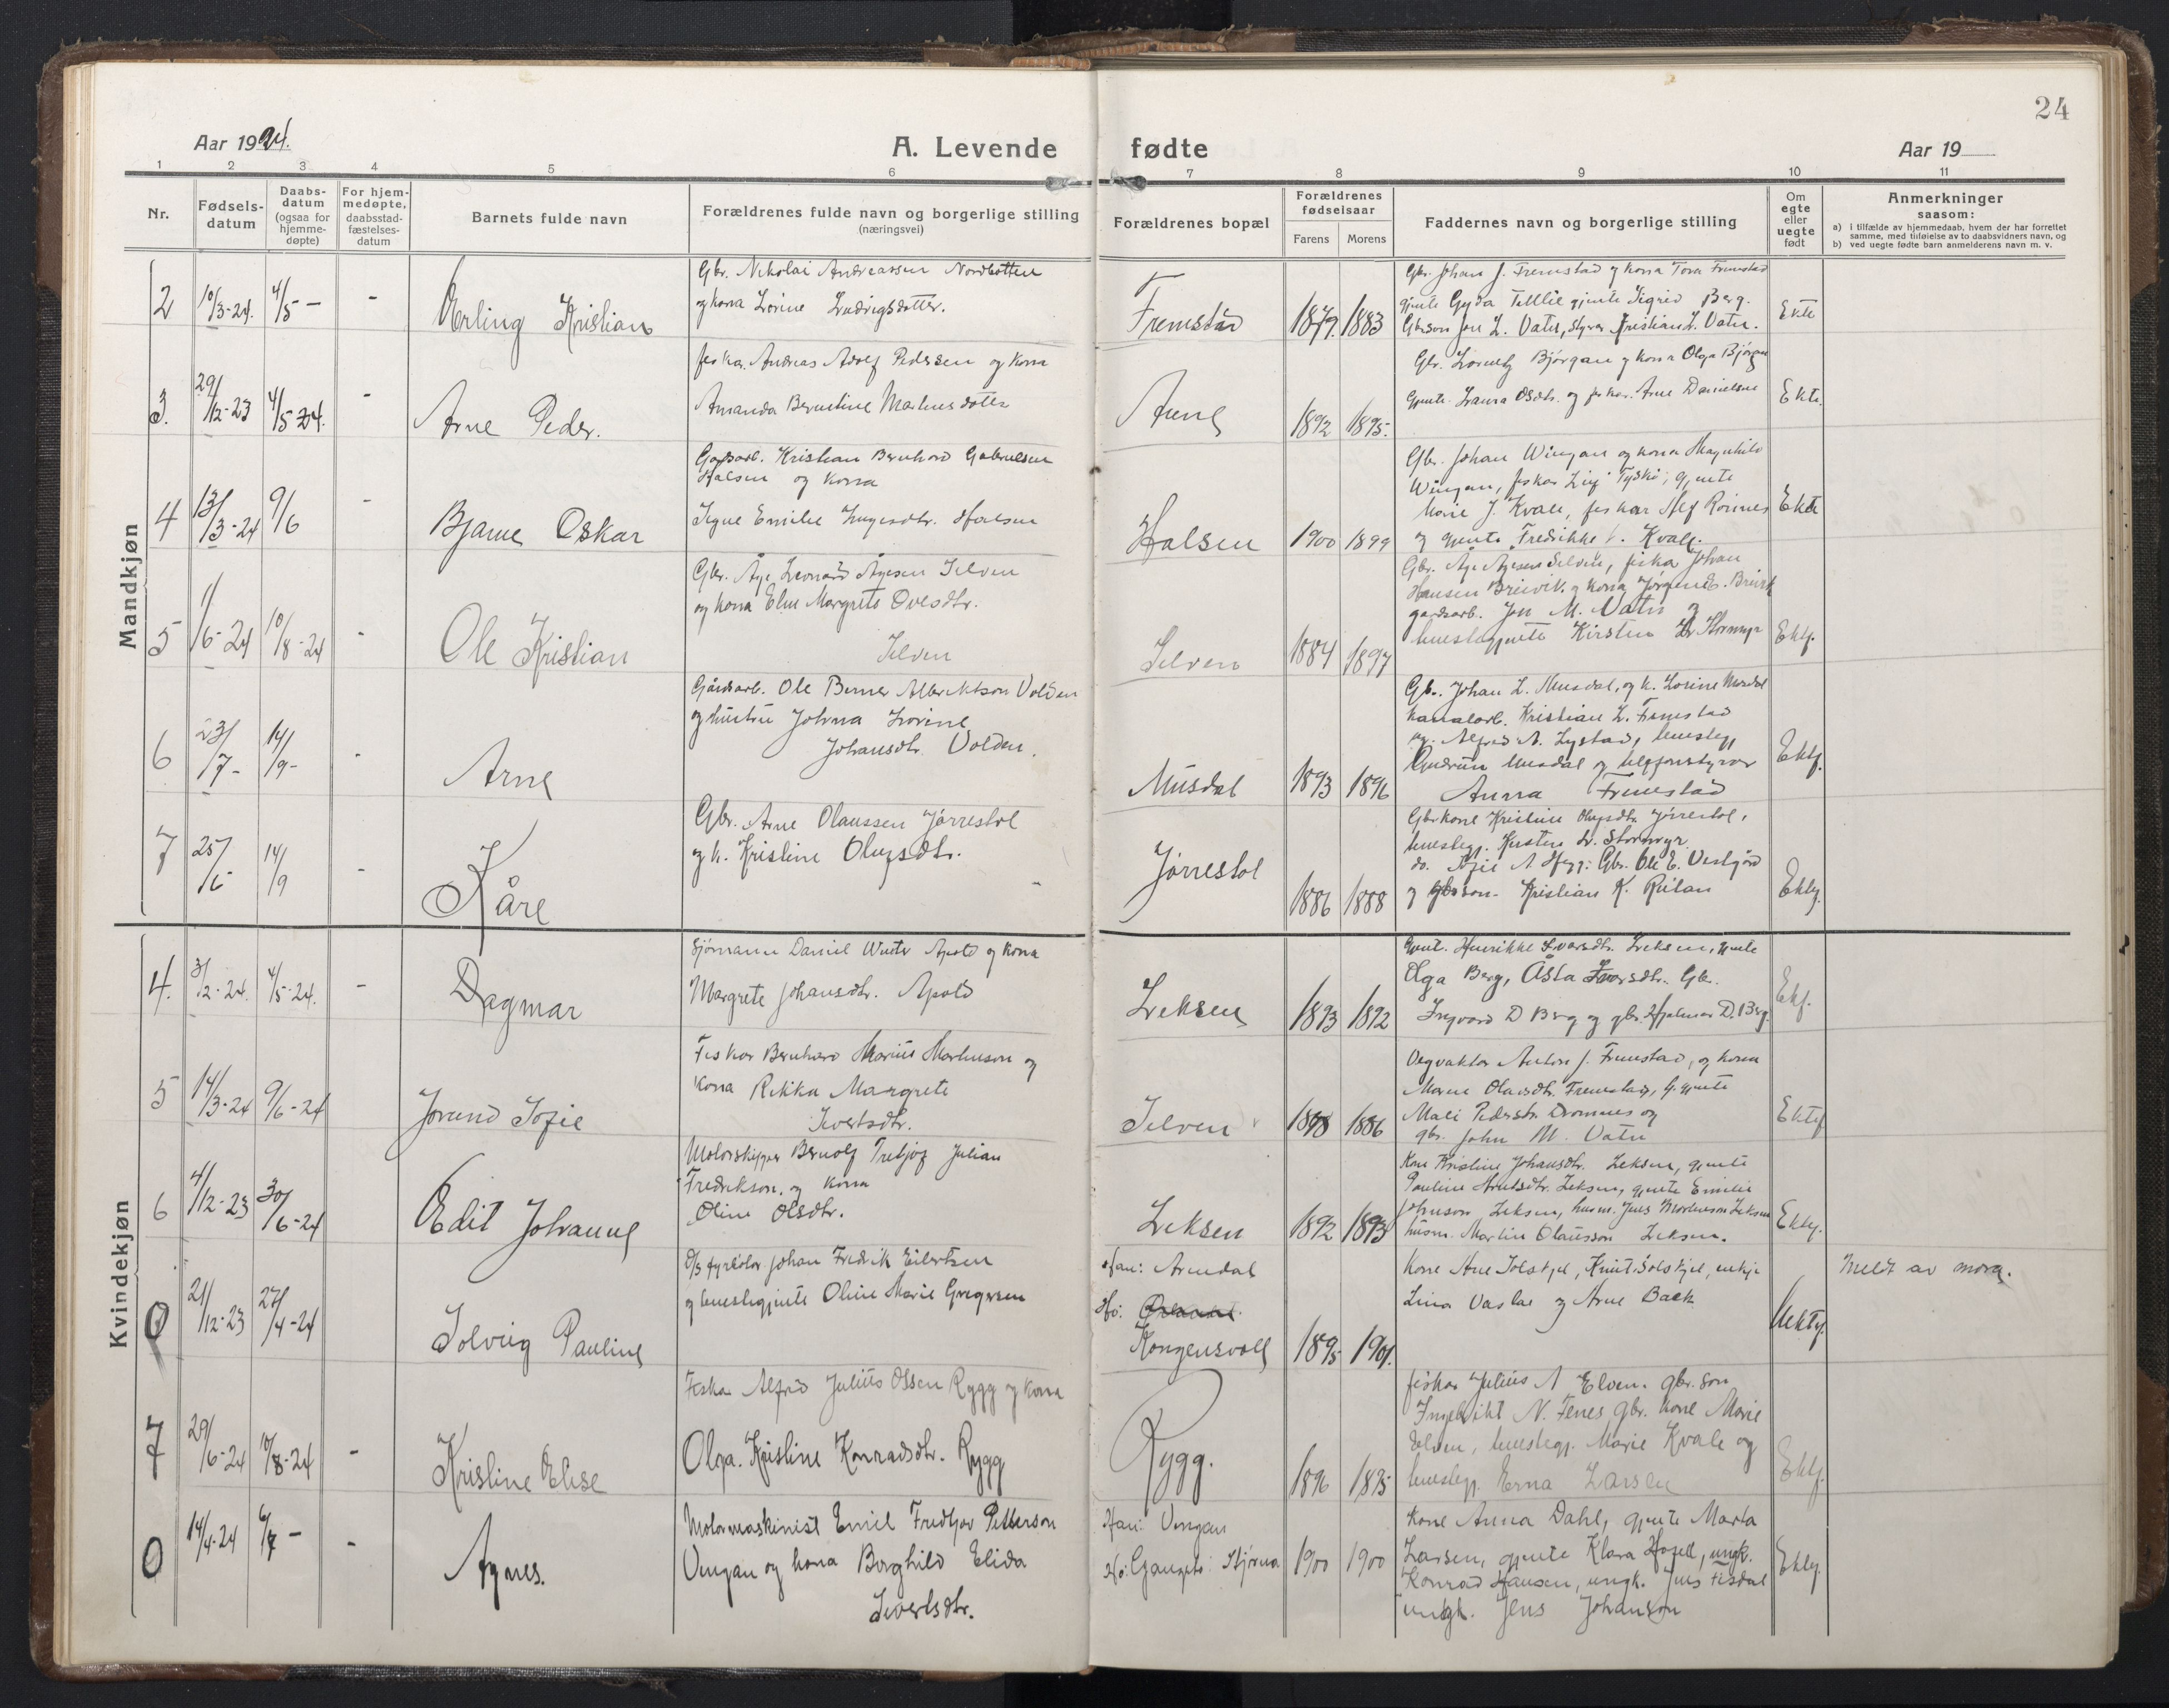 24
Aar 1924.
A. Levende fødte
Aar 19
1 2 3 4 5 6 7 8 9 10 11
Nr.
Fødsels-
datum
Daabs-
datum
(ogsaa for
hjemme-
døpte)
For hjem-
medøpte,
daabsstad-
fæstelses-
datum
Barnets fulde navn
Forældrenes fulde navn og borgerlige stilling
(næringsvei)
Forældrenes bopæl
Forældrenes
fødselsaar
Farens Morens
Faddernes navn og borgerlige stilling
Om
egte
eller
uegte
født
Anmerkninger
saasom:
a) i tilfælde av hjemmedaab, hvem der har forrettet
samme, med tilføielse av to daabsvidners navn, og
b) ved uegte fødte barn anmelderens navn m. v.
Mandkjøn
2 10/3-24. 4/5 - -
Erling Kristian
Gbr. Nikolai Andreassen Nordbotten
og kona Lorine Ludvigsdotter.
Fremstad 1879. 1883
Gbr. Johan J. Fremstad og kona Tora Fremstad
gjente Gyda gjente Sigrid Berg.
Gbrson Jon L. Vatn, styrer Kristian L. Vatn.
Ekte
3. 29/12-23 4/5 24. -
Arne Peder.
fiskar. Andreas Adolf Pedersen og kona
Amanda Berntine Martinusdotter
Aune 1892 1895.
Gbr. Lorentz Bjørgan og kona Olga Bjørgan
Gjente Laura Osdtr. og fiskar. Arne Danielsen
Ekte.
4 13/3-24 9/6 -
Bjarne Oskar
Gardsarb. Kristian Bernhard Gabrielsen
Halsen og kona
Signe Emilie Ingesdtr. Halsen
Halsen 1900 1899
Gbr. Johan Wingan og kona Magnhild
Wingan, fiskar Tyskø, gjente
Marie J. Kvale, fiskar Alf
og gjente Fredrikke Kvale.
Ekte
5 1/6-24 10/8-24 -
Ole Kristian
Gbr. Åge Leonard Ågesen Selven
og kona Elen Margrete Ovesdtr.
Selven
Selven 1884 1897
Gbr. Åge Agesen Selven, fiskar Johan
Hansen Breivik og kona Jørgine E. Breivik
gardsarb. Jon M. Vatn og
huuslegjente Kirsten Stormyr
Ektef.
6 23/7- 14/9- -
Arne
Gårdsarb. Ole Berner Albriktson Volden
og hustru Johna Lovine
Johansdtr. Volden.
Musdal 1893 1896
Gbr. Johan L. Musdal, og k. Lorine Musdal
Kanalarb. Kristian L. Fremstad
og Alfred A. Lystad, huuslegj.
Gudrun Musdal og telefonstyrar
Anna Fremstad
Ektef.
7 25/6 14/9 -
Kåre
Gbr. Arne Olaussen Jørrestol
og k. Kristine Olugsdtr. "
Jørrestol 1886 1888
Gbrkone Kristine Olugsdtr. Jørrestol,
huuslegj. Kirsten Stormyr
do. Sofie A Hegg: Gbr. Ole E. Vestgård
og gbrson. Kristian K. Rislan
Ektef.
Kvindekjøn
4. 3/2-24. 4/5-24. -
Dagmar
Sjømann Daniel Winter Apold og kona
Margrete Johansdtr. Apold
Leksen 1893 1892
Gjent. Henrikke Ivarsdtr. Leksen, gjente
Olga Berg, Åsta Ivarsdtr. Gbr.
Ingvard D Berg og gbr. Hjalmar D. Berg.
Ektf.
5 14/3-24 9/6-24
Jorund Sofie
Fiskar Bernhard Marius Martinuson og
kona Rikka Margrete
Sivertsdtr.
Selven 1898 1886
Vegvaktar Anton J. Fremstad, og kona
Maren Olavsdtr. Fremstad, gjente
Mali Pedersdtr. og
gbr. John M. Vatn
Ektef
6 4/12-23 30/6-24
Edit Johanne
Motorskipper Bernolf Fritjof Julian
Fredrikson. og kona
Oline Olsdtr.
Leksen 1892 1893
Kone Kristine Johansdtr. Leksen, gjente
Pauline Arntsdtr. Leksen, gjente Emilie
Johnson Leksen, husm. Jens Mortenson Leksen
husm. Martin Olausson Leksen.
Ektef.
0 21/12-23 27/4-24
Solvéig Pauline
D/s fyrbøter Johan Fredrik Eilertsen
og huuslegjente Oline Marie Gregersen
Han: Arendal
Ho:
Kongensvoll 1895 1901.
Kone Ane Solskjel, Knut Solskjel, enkje
Lina Vaslae og Arne Baek
Uektef.
Meldt av mora.
7 29/6-24 10/8-24 -
Kristine Elise
Fiskar Alfred Julius Olsen Rygg og kona
Olga. Kristine Konradsdtr. Rygg
Rygg. 1896 1895
fiskar Julius A Elven. gbr.son
Ingebrikt N. Fenes, gbr. kone Marie
Elven, huuslegj. Marie Kvale og
huuslegj. Erna Larsen
Ektef.
0 14/4-24 6/7 - -
Agnes.
Motormaskinist Emil Fredtjov Petterson
Vingan og kona Borghild Elida
Sivertsdtr.
Han: Vingan
Ho: Gangstø. Stjørna 1900 1900
Kone Anna Dahl, gjente Marta
Larsen, gjente Klara Hopell, ungk.
Konrad Hansen, ungk. Jens Fisdal
ungk. Jens Johanson
Ektef.